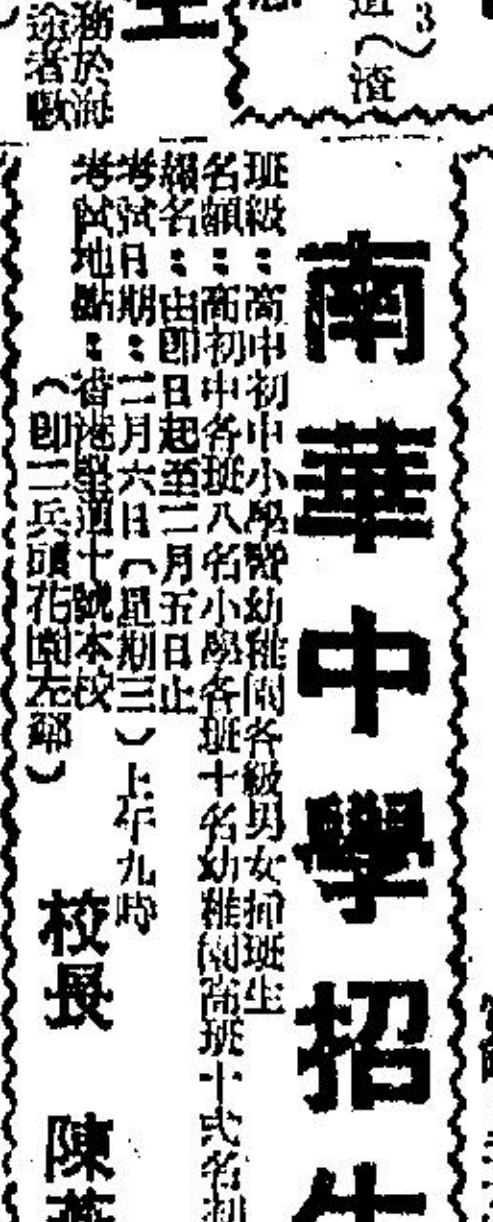 道（渣
3
海於海
途者歟
南華中學招生
班級：高中初中小學暨幼稚園各級男女插班生
名額：高初中各班八名小學各班十名幼稚園高班十弍名初
報名：由即日起至二月五日止
考試日期：二月六日（星期三）上午九時
考試地點：香港堅道十號本校
（即二兵頭花園左鄰）
校長　陳